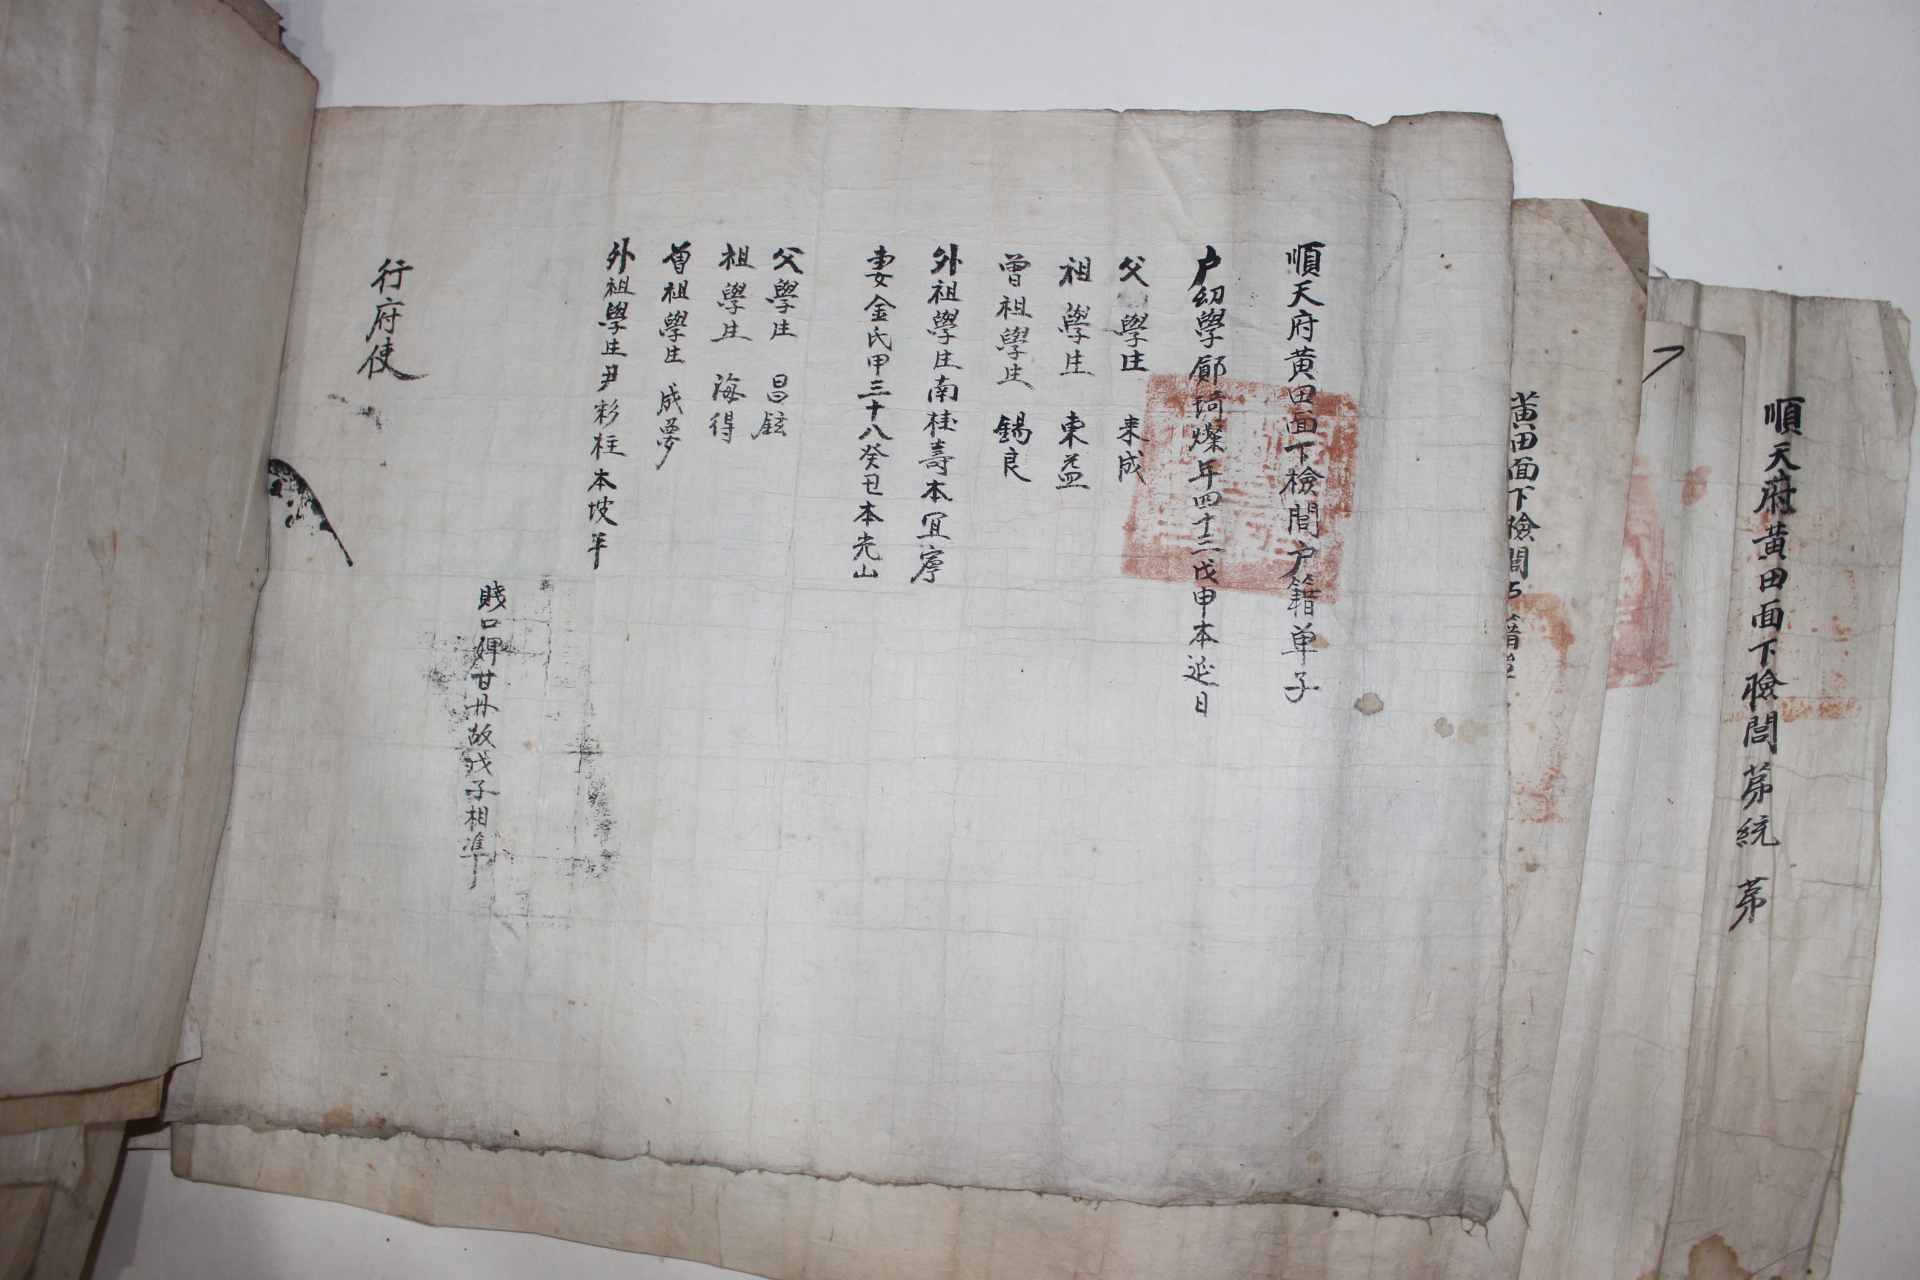 順天府黃田面下檢閭第統 第
黃田面下檢閭戶籍單
順天府黃田面下檢閭户籍单子
户幼學鄭琦燦年四十二戊申本延日
父學生 来成
祖學生 東益
曽祖學生 錫良
外祖學生南桂壽本冝寧
妻金氏甲三十八癸丑本光山
父學生 昌鉉
祖學生 海得
曽祖學生 成夢
外祖學生尹彩柱本坡平
賤口婢甘丹故戊子相準
行府使